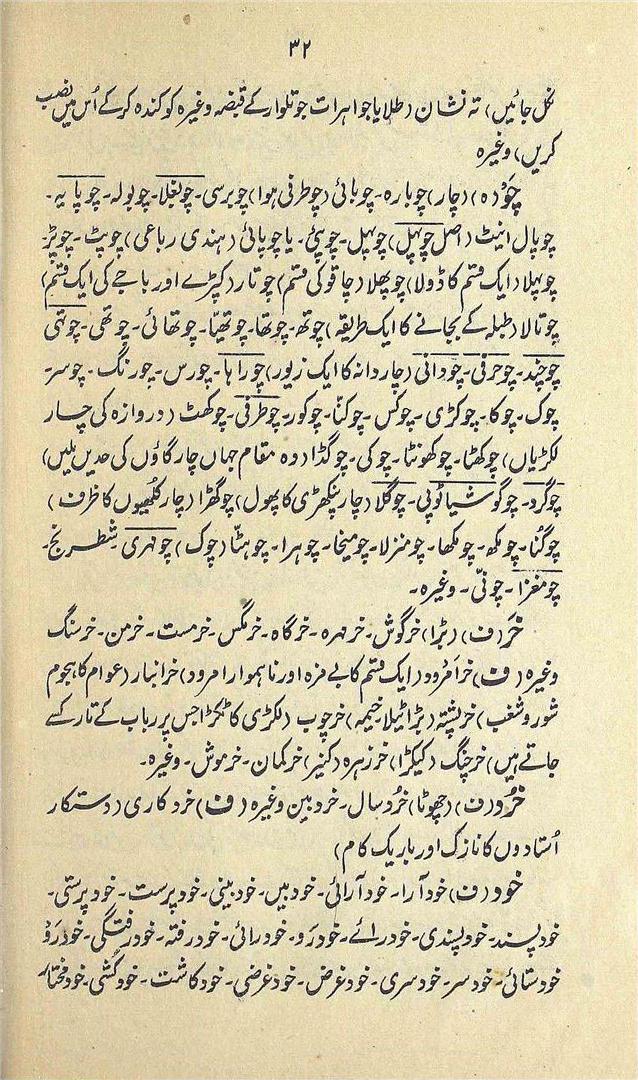 ۳۲
نکل جائیں) تہ نشان (طلا یا جواہرات جو تلوار کے قبضہ وغیرہ کو کندہ کر کے اُس میں نصب
کریں) وغیرہ
چَوْ (ہ) (چار) چوبارہ۔ چوبائی (چوطرفی ہوا) چوبرسی۔ چوبغلا۔ چوبولہ۔ چوپایہ۔
چوپال انیٹ (اصل چوپہل) چوپہل۔ چوپئی۔ یا چوپائی (ہندی رباعی) چوپٹ۔ چوپڑ۔
چوپہلا (ایک قسم کا ڈولا) چوپھلا (چاقو کی قسم) چوتار (کپڑے اور باجے کی ایک قسم)
چوتالا (طبلہ کے بجانے کا ایک طریقہ) چوتھ۔ چوتھا۔ چوتھیّا۔ چوتھائی۔ چوتھی۔ چوتہی
چوچند۔ چوحرفی۔ چودانی (چار دانہ کا ایک زیور) چوراہا۔ چورس۔ چورنگ۔ چوسر۔
چوک۔ چوکا۔ چوکڑی۔ چوکس۔ چوکنّا۔ چوکور۔ چوطرفی۔ چوکھٹ (دروازہ کی چار
لکڑیاں) چوکھٹا۔ چوکھونٹا۔ چوکی۔ چوگڈا (وہ مقام جہاں چار گاؤں کی حدیں ملیں)
چوگرد۔ چوگوشیا ٹوپی۔ چوگلا (چار پنکھڑی کا پھول) چوگھڑا (چار کلھیوں کا ظرف)
چوگنا۔ چومکھ۔ چومکھا۔ چومنزلا۔ چومیخا۔ چوہرا۔ چوہٹّا (چوک) چوہری۔ شطرنج۔
چومغزا۔ چونّی۔ وغیرہ۔
خَر (ف) (بڑا) خرگوش۔ خرمہرہ۔ خرگاہ۔ خرمگس۔ خرمست۔ خرمن۔ خرسنگ
وغیرہ (ف) خرامرود (ایک قسم کا بے مزہ اور ناہموار امرود) خرانبار (عوام کا ہجوم
شور و شغب) خرپشتہ (بڑا ٹیلا، خیمہ) خرچوب (لکڑی کا ٹکڑا جس پر رباب کے تار کسے
جاتے ہیں) خرچنگ (کیکڑا) خرزہرہ (کنیر) خرکمان۔ خرموش۔ وغیرہ۔
خُرد (ف) (چھوٹا) خُردسال۔ خردبین وغیرہ (ف) خردکاری (دستکار
اُستادوں کا نازک اور باریک کام)
خود (ف) خودآرا۔ خودآرائی۔ خودبیں۔ خودبینی۔ خودپرست۔ خودپرستی۔
خودپسند۔ خودپسندی۔ خودرائے۔ خودرَو۔ خودرائی۔ خودرفتہ۔ خودرفتگی۔ خودرَوْ
خودستائی۔ خودسر۔ خودسری۔ خودغرض۔ خودغرضی۔ خودکاشت۔ خودکُشی۔ خودمختار